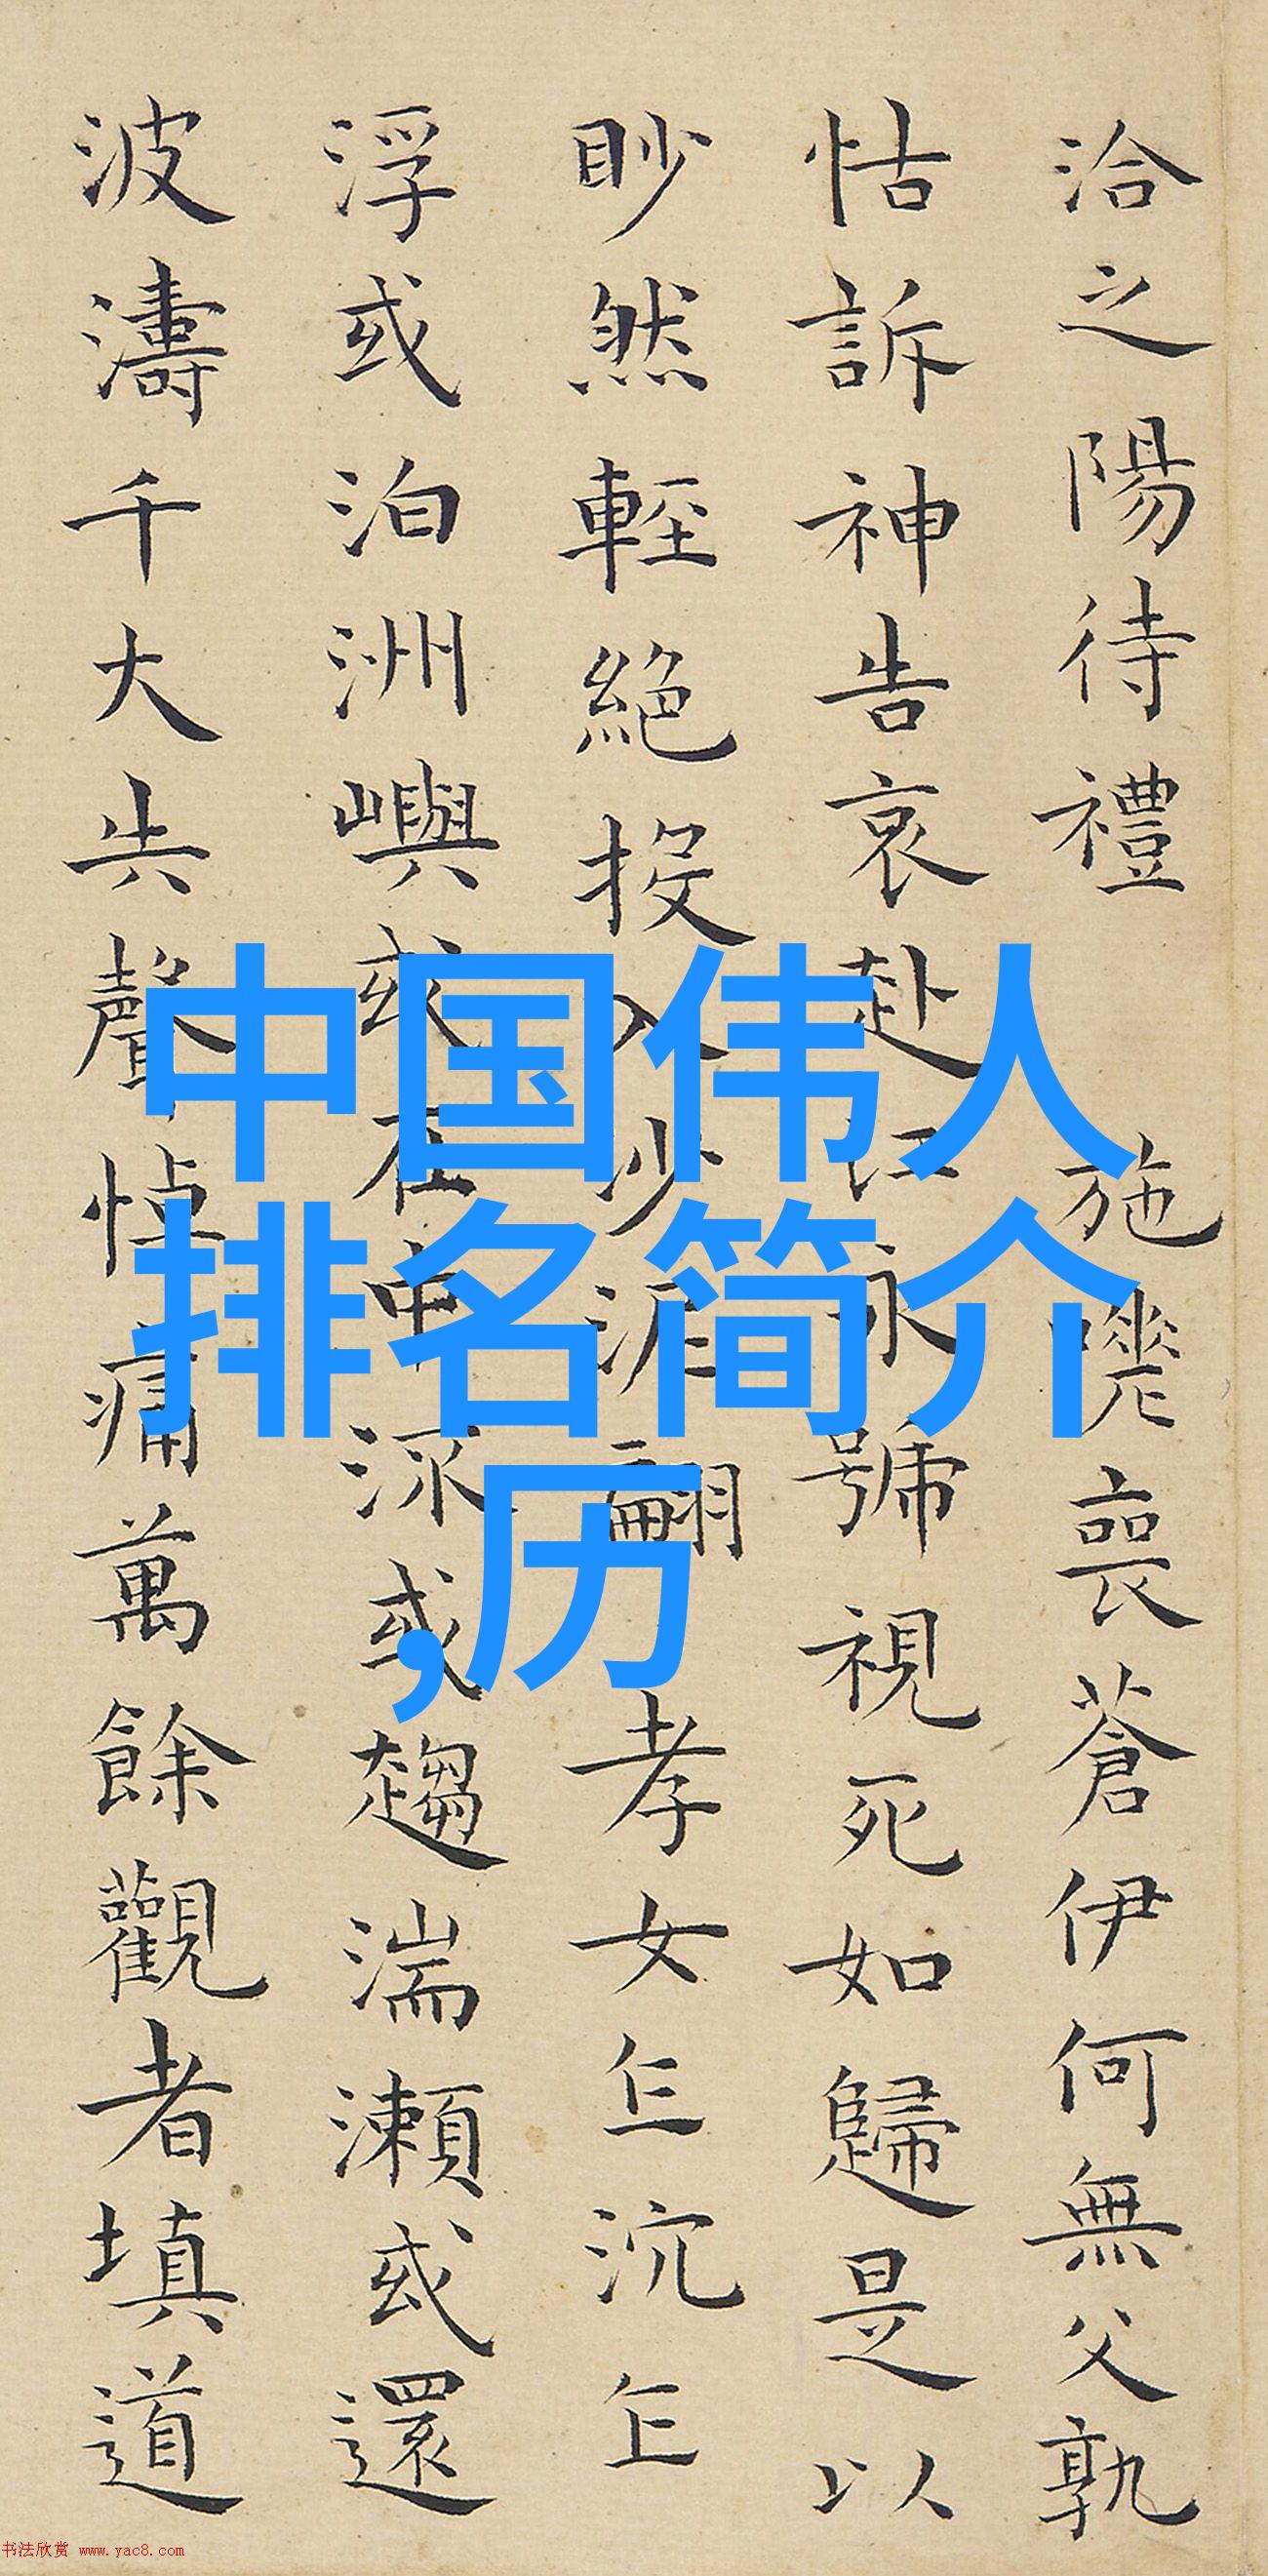 洽之陽待禮 施嗟喪蒼伊何無父孰
怙訴神告哀赴江永號視死如歸是以
眇然輕絕投入沙泥翩 孝女乍沉乍
浮或泊洲嶼或在中流或趨湍瀨或還
波濤千大失聲悼痛萬餘觀者填道
中国伟人
排名简介
,历
书法欣赏 www.yac8.com